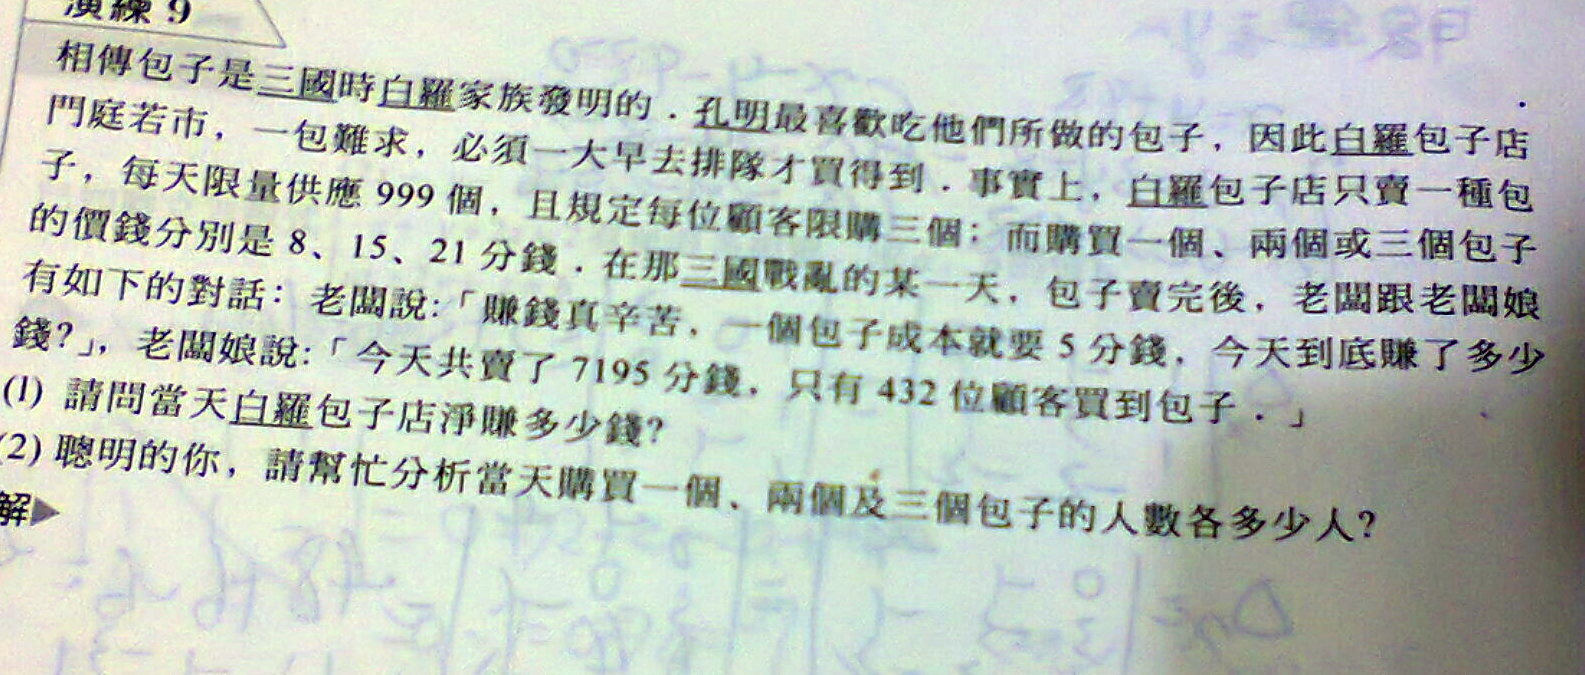 演練 9
相傳包子是三國時白羅家族發明的．孔明最喜歡吃他們所做的包子，因此白羅包子店
門庭若市，一包難求，必須一大早去排隊才買得到．事實上，白羅包子店只賣一種包
子，每天限量供應 999 個，且規定每位顧客限購三個；而購買一個、兩個或三個包子
的價錢分別是 8、15、21 分錢．在那三國戰亂的某一天，包子賣完後，老闆跟老闆娘
有如下的對話：老闆說:「賺錢真辛苦，一個包子成本就要 5 分錢，今天到底賺了多少
錢?」，老闆娘說:「今天共賣了 7195 分錢，只有 432 位顧客買到包子．」
(1) 請問當天白羅包子店淨賺多少錢?
(2) 聰明的你，請幫忙分析當天購買一個、兩個及三個包子的人數各多少人?
解